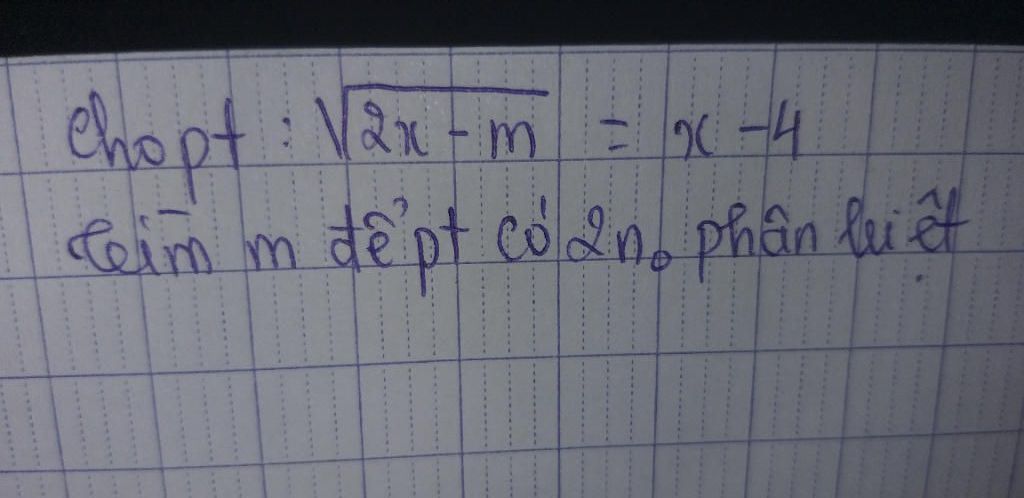 Cho pt : √2x - m = x - 4
Tìm m để pt có 2 no phân biệt